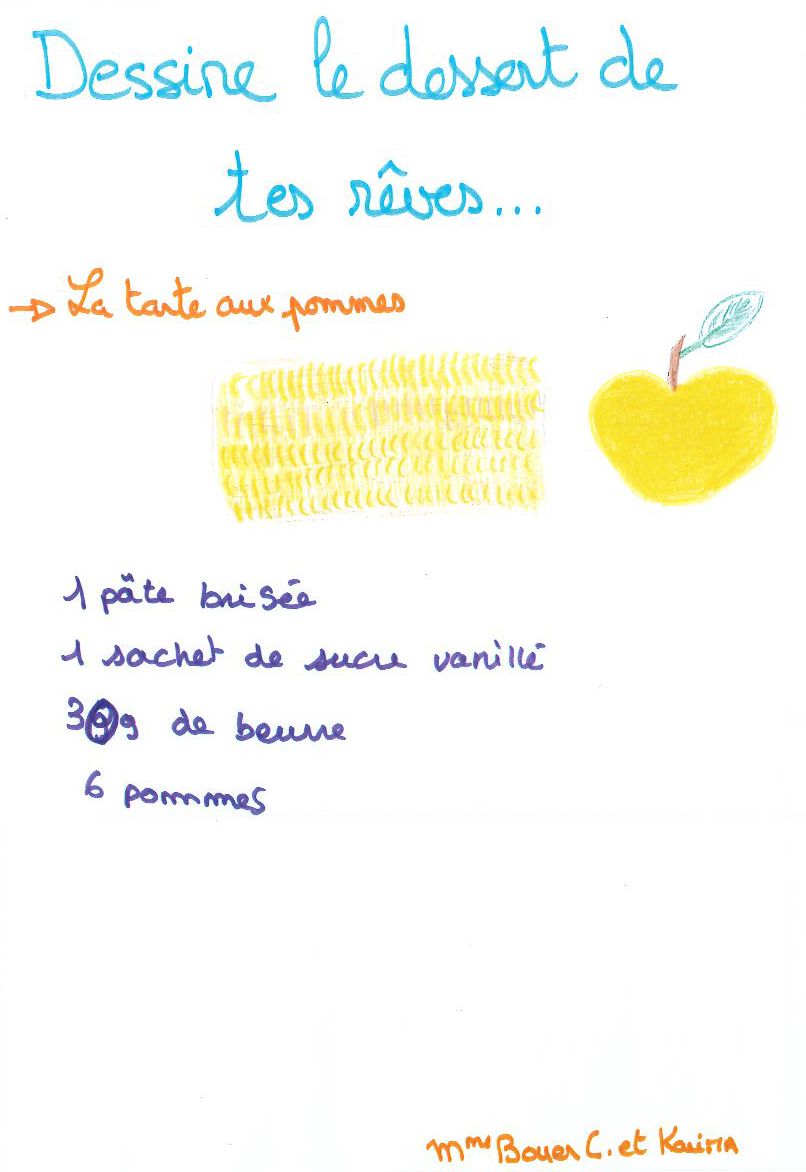 Dessine le dessert de
tes rêves...
La tarte aux pommes
1 pâte brisée
1 sachet de sucre vanillé
30g de beurre
6 pommes
Mme Bouer C. et Karima